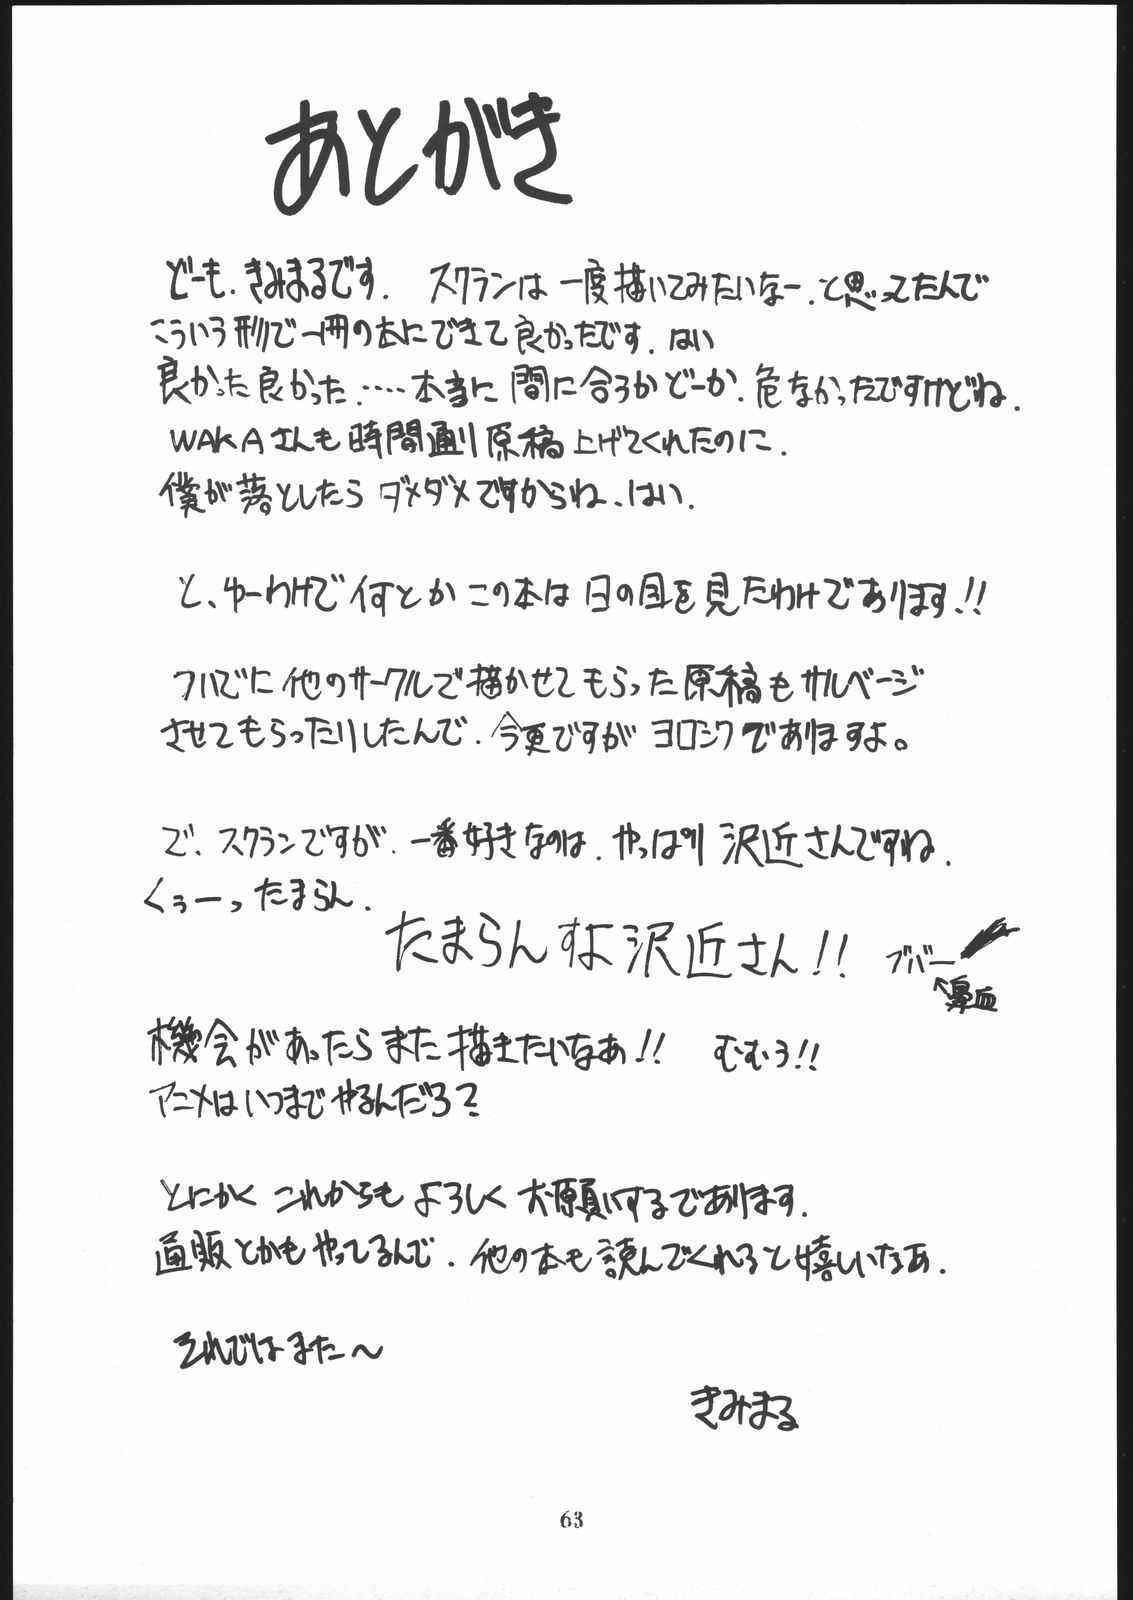 あとがき
どーも、きみまるです。スクランは一度描いてみたいなー、と思ってたんで
こういう形で一冊の本にできて良かったです。はい
良かった良かった‥‥‥本当に間に合うかどーか、危なかったですけどね。
WAKAさんも時間通り原稿上げてくれたのに、
僕が落としたらダメダメですからね、はい。
と、ゆーわけで何とかこの本は日の目を見たわけであります!!
ついでに他のサークルで描かせてもらった原稿もサルベージ
させてもらったりしたんで、今更ですがヨロシクでありますよ。
で、スクランですが、一番好きなのは、やっぱり沢近さんですね。
くぅーったまらん。
たまらんすよ沢近さん!! ブバー
↑鼻血
機会があったらまた描きたいなあ!! むむう!!
アニメはいつまでやるんだろ?
とにかくこれからもよろしくお願いするであります。
通販とかもやってるんで、他の本も読んでくれると嬉しいなあ。
それではまた〜
きみまる
63